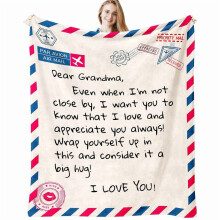 PAR AVION
AIR MAIL
Dear Grandma,
Even when I'm not
close by, I want you to
know that I love and
appreciate you always!
Wrap yourself up in
this and consider it a
big hug!
I LOVE YOU!